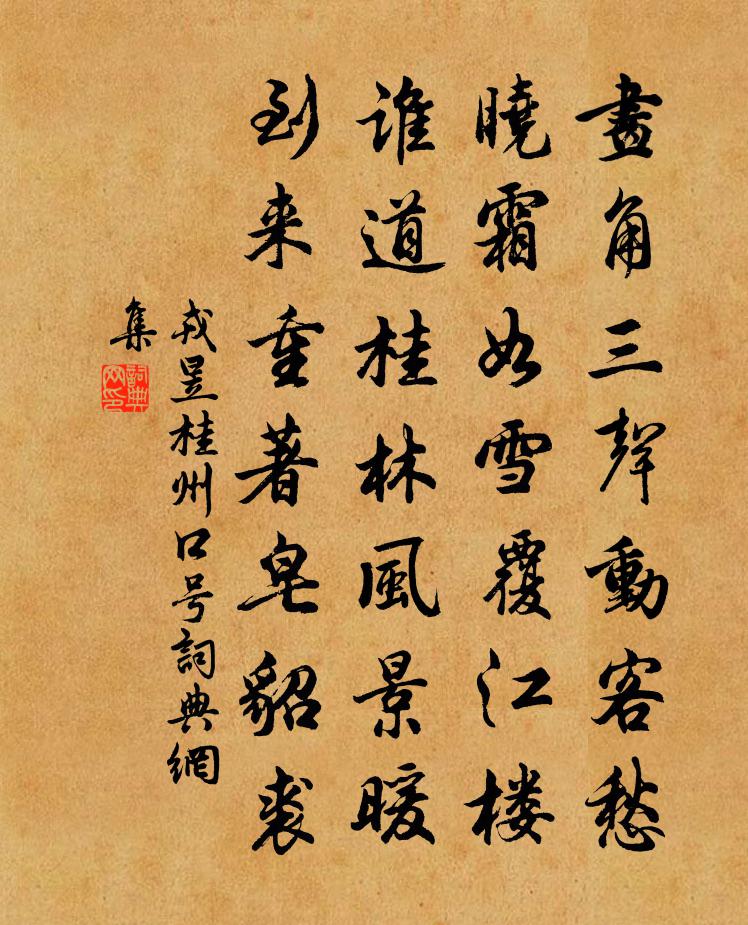 畫角三聲動客愁
曉霜如雪覆江楼
誰道桂林風景暖
到来重著皂貂裘
戎昱桂州口号詞典網
集
詞典
网印